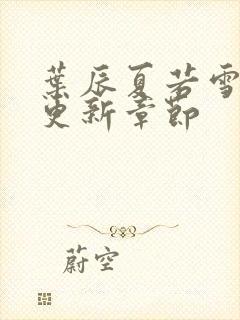 葉辰夏若雪
更新章節
蔚空